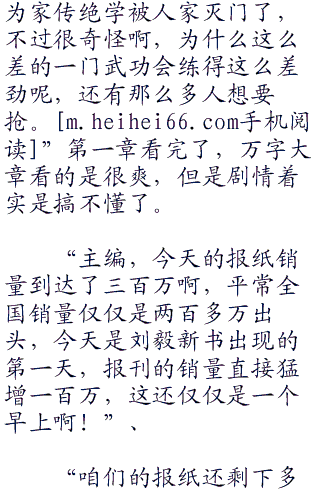 为家传绝学被人家灭门了，
不过很奇怪啊，为什么这么
差的一门武功会练得这么差
劲呢，还有那么多人想要
抢。[m.heihei66.com手机阅
读]”第一章看完了，万字大
章看的是很爽，但是剧情着
实是搞不懂了。
“主编，今天的报纸销
量到达了三百万啊，平常全
国销量仅仅是两百多万出
头，今天是刘毅新书出现的
第一天，报刊的销量直接猛
增一百万，这还仅仅是一个
早上啊！”、
“咱们的报纸还剩下多